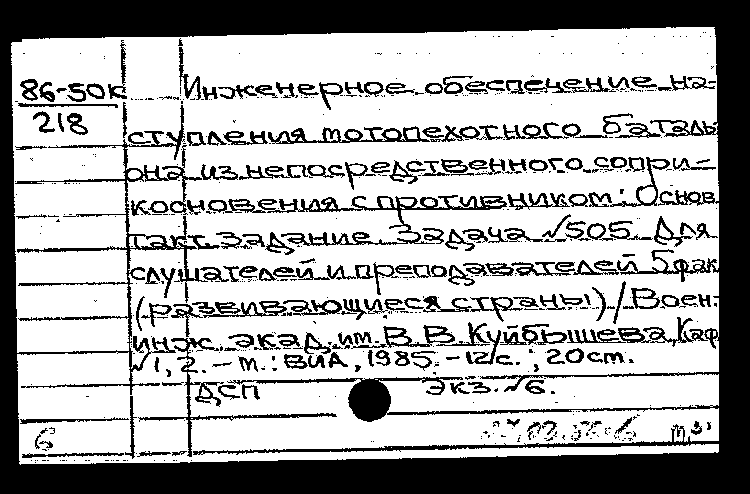 86-50к
218
Инженерное обеспечение на-
ступления мотопехотного баталь
она из непосредственного сопри-
косновения с противником: Основ.
такт. задание. Задача №505. Для
слушателей и преподавателей 5 фак
(развивающиеся страны) / Воен.-
инж. акад. им. В. В. Куйбышева, Каф
№1, 2. - М.: ВИА, 1985. - 12 с.; 20 см.
ДСП Экз. №6.
6